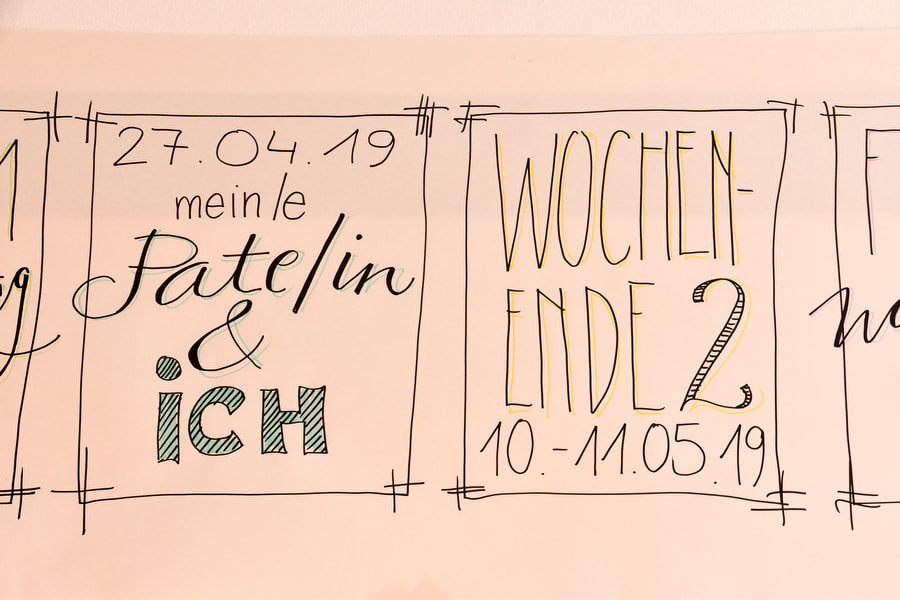 27.04.19
mein/e
Pate/in
&
ICH
WOCHEN-
ENDE 2
10.-11.05.19